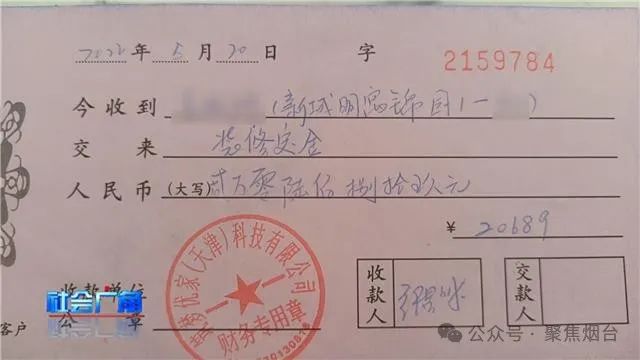 2022 年 5 月 20 日 字 2159784
今收到 (新城明宸锦园1一
交来 装修定金
人民币(大写) 贰万零陆佰捌拾玖元
¥ 20689
收款单位
公章
(天津)科技有限公司
财务专用章
收款人
交款人
客户
社会广角
公众号·聚焦烟台